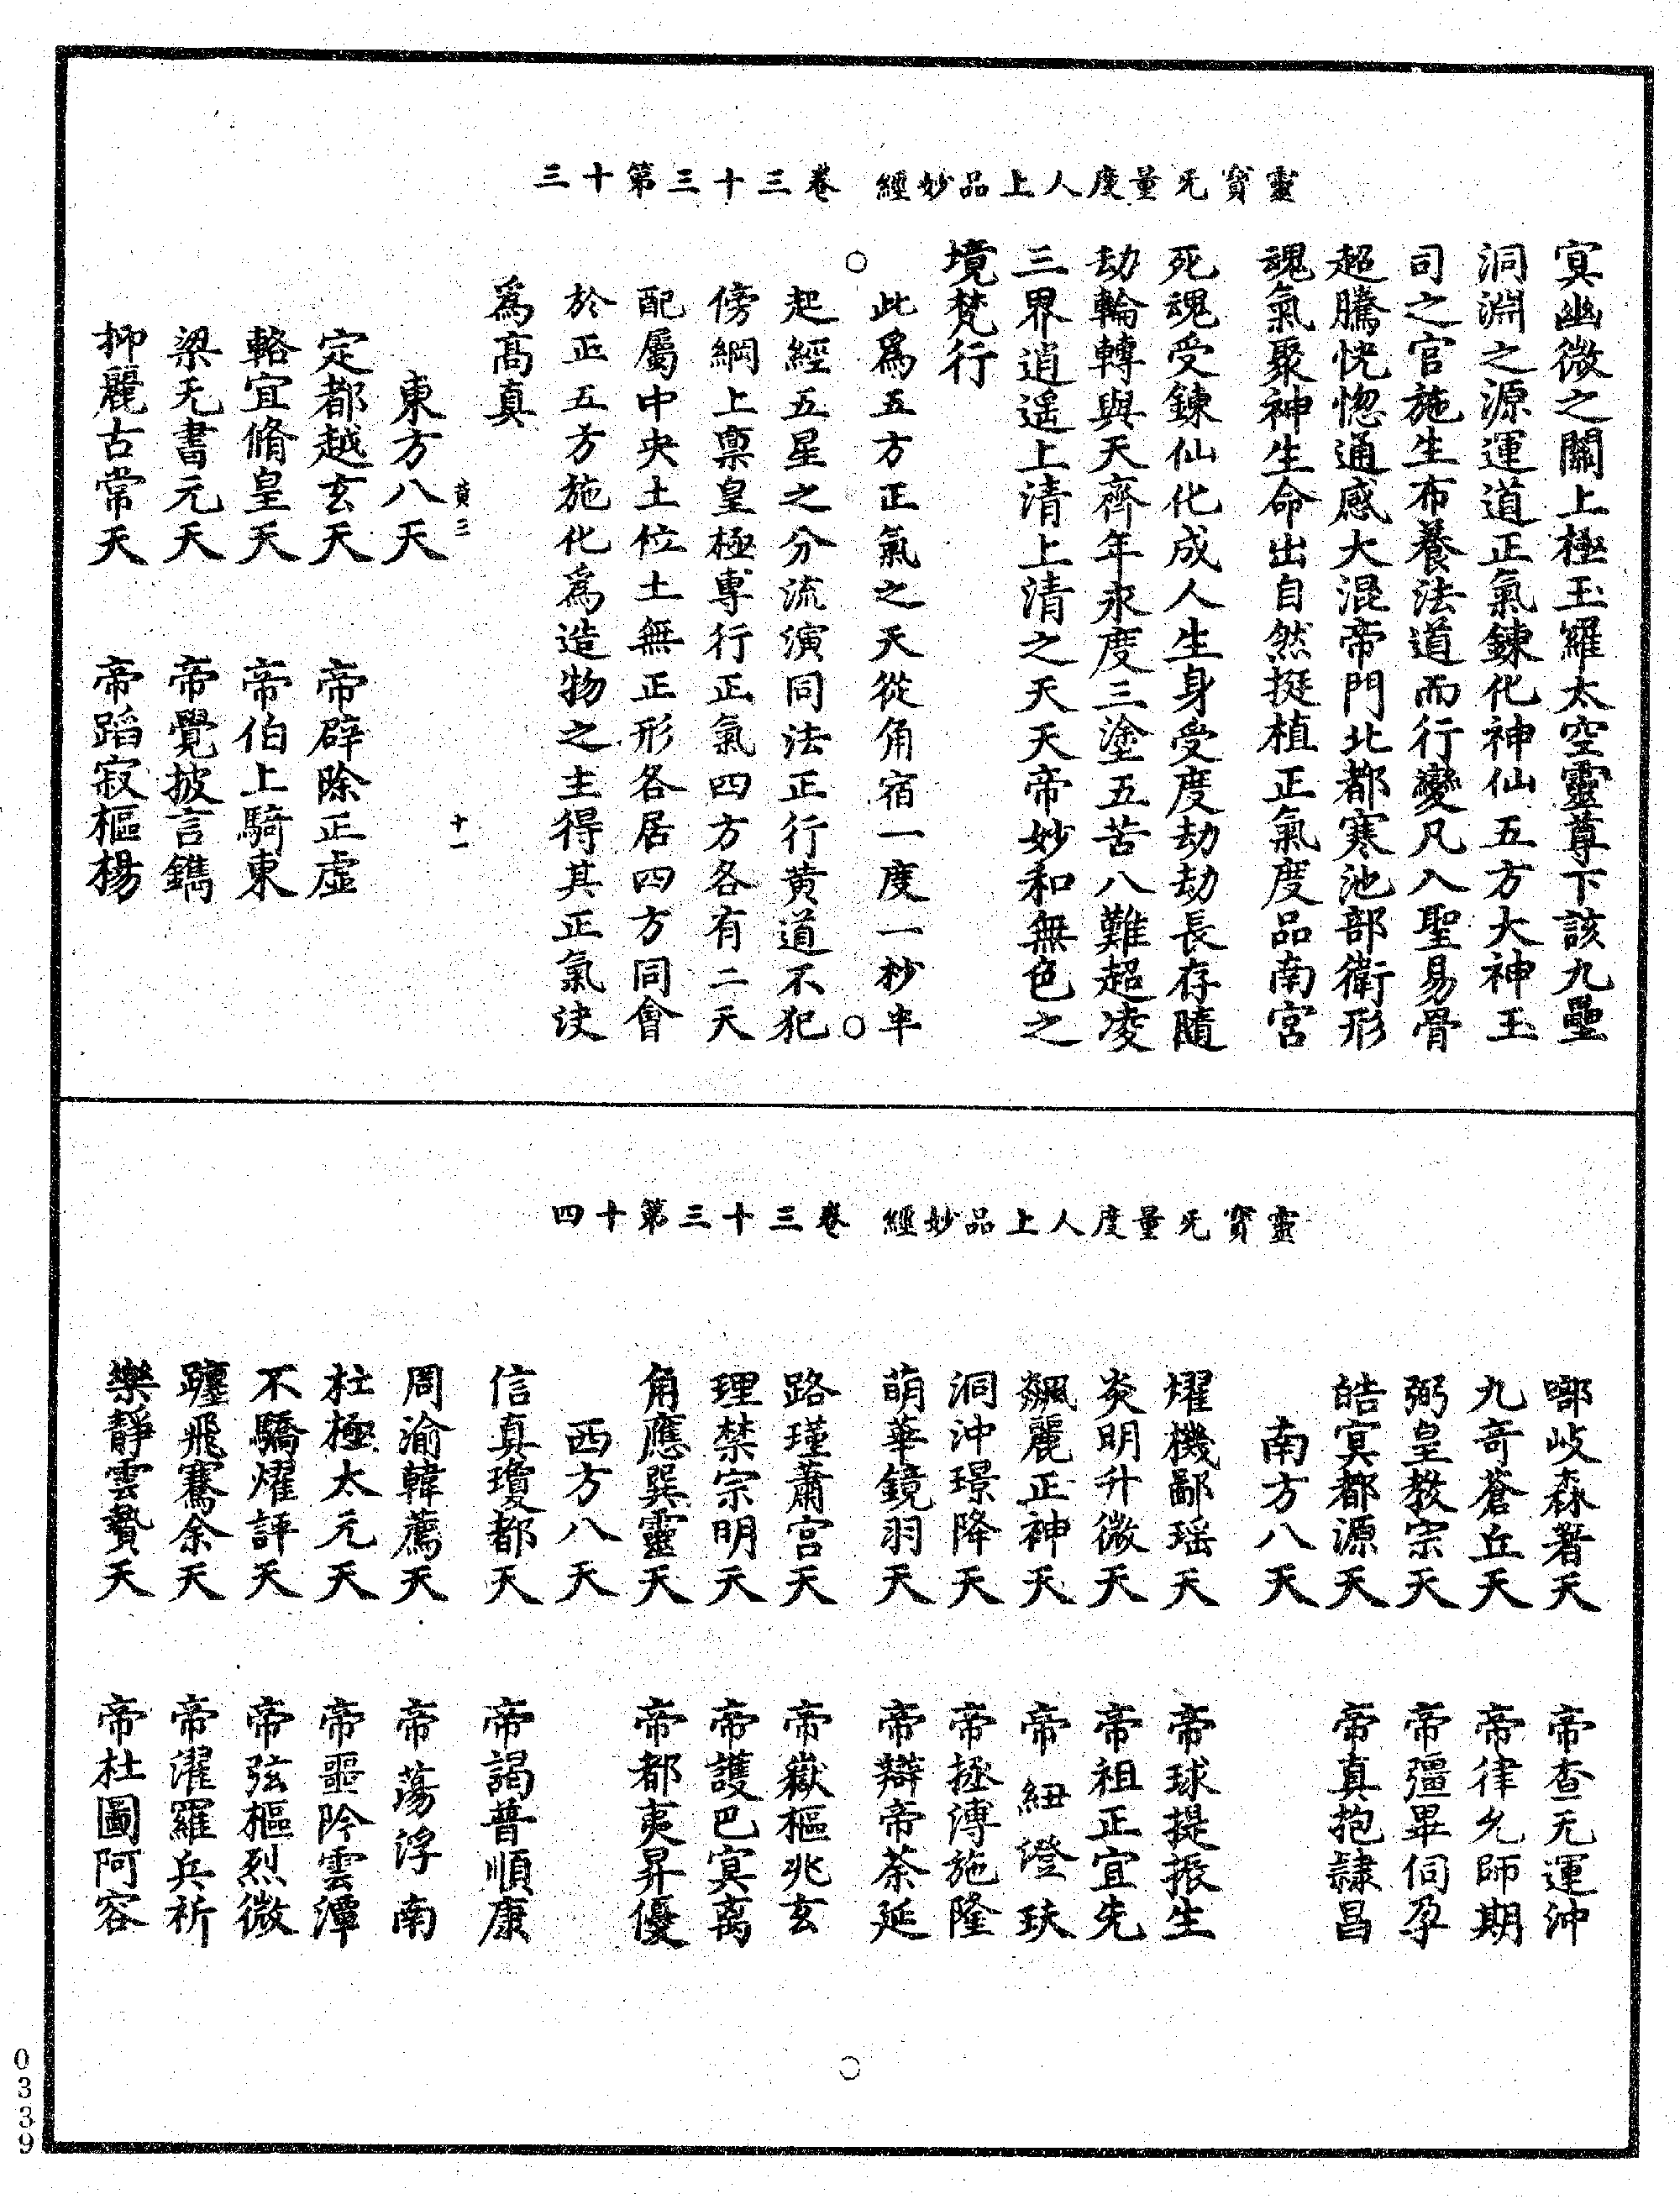 靈寶无量度人上品妙經　卷三十三第十三
冥幽微之關上極玉羅太空靈尊下該九壘
洞淵之源運道正氣鍊化神仙五方大神玉
司之官施生布養法道而行變凡入聖易骨
超騰恍惚通感大混帝門北都寒池部衛形
魂氣聚神生命出自然挺植正氣度品南宮
死魂受鍊仙化成人生身受度劫劫長存隨
劫輪轉與天齊年永度三塗五苦八難超凌
三界逍遙上清上清之天天帝妙和無色之
境梵行
此爲五方正氣之天從角宿一度一杪半
起經五星之分流演同法正行黃道不犯
傍綱上稟皇極專行正氣四方各有二天
配屬中央土位土無正形各居四方同會
於正五方施化爲造物之主得其正氣決
爲高真
黃三　十一
東方八天
定都越玄天　帝辟除正虛
輅宜脩皇天　帝伯上騎東
梁无書元天　帝覺披言鐫
抑麗古常天　帝蹈寂樞楊
靈寶无量度人上品妙經　卷三十三第十四
啷岐森著天　帝查无運沖
九奇蒼丘天　帝律允師期
弼皇教宗天　帝彊畢伺孕
皓冥都源天　帝真抱隸昌
南方八天
燿機鄙瑶天　帝球提振生
炎明升微天　帝祖正宜先
飆麗正神天　帝紐澄玞
洞沖璟降天　帝拯溥施隆
萌華鏡羽天　帝辯帝荼延
路瑾蕭宮天　帝嶽樞兆玄
理禁宗明天　帝護巴冥离
角應巽靈天　帝都夷昇優
西方八天
信真瓊都天　帝謁普順康
周渝韓薦天　帝蕩浮南
杜極太元天　帝噩昑雲潭
不驕燿評天　帝弦樞烈微
躔飛騫余天　帝濯羅兵祈
樂靜雲贄天　帝杜圖阿容
0339